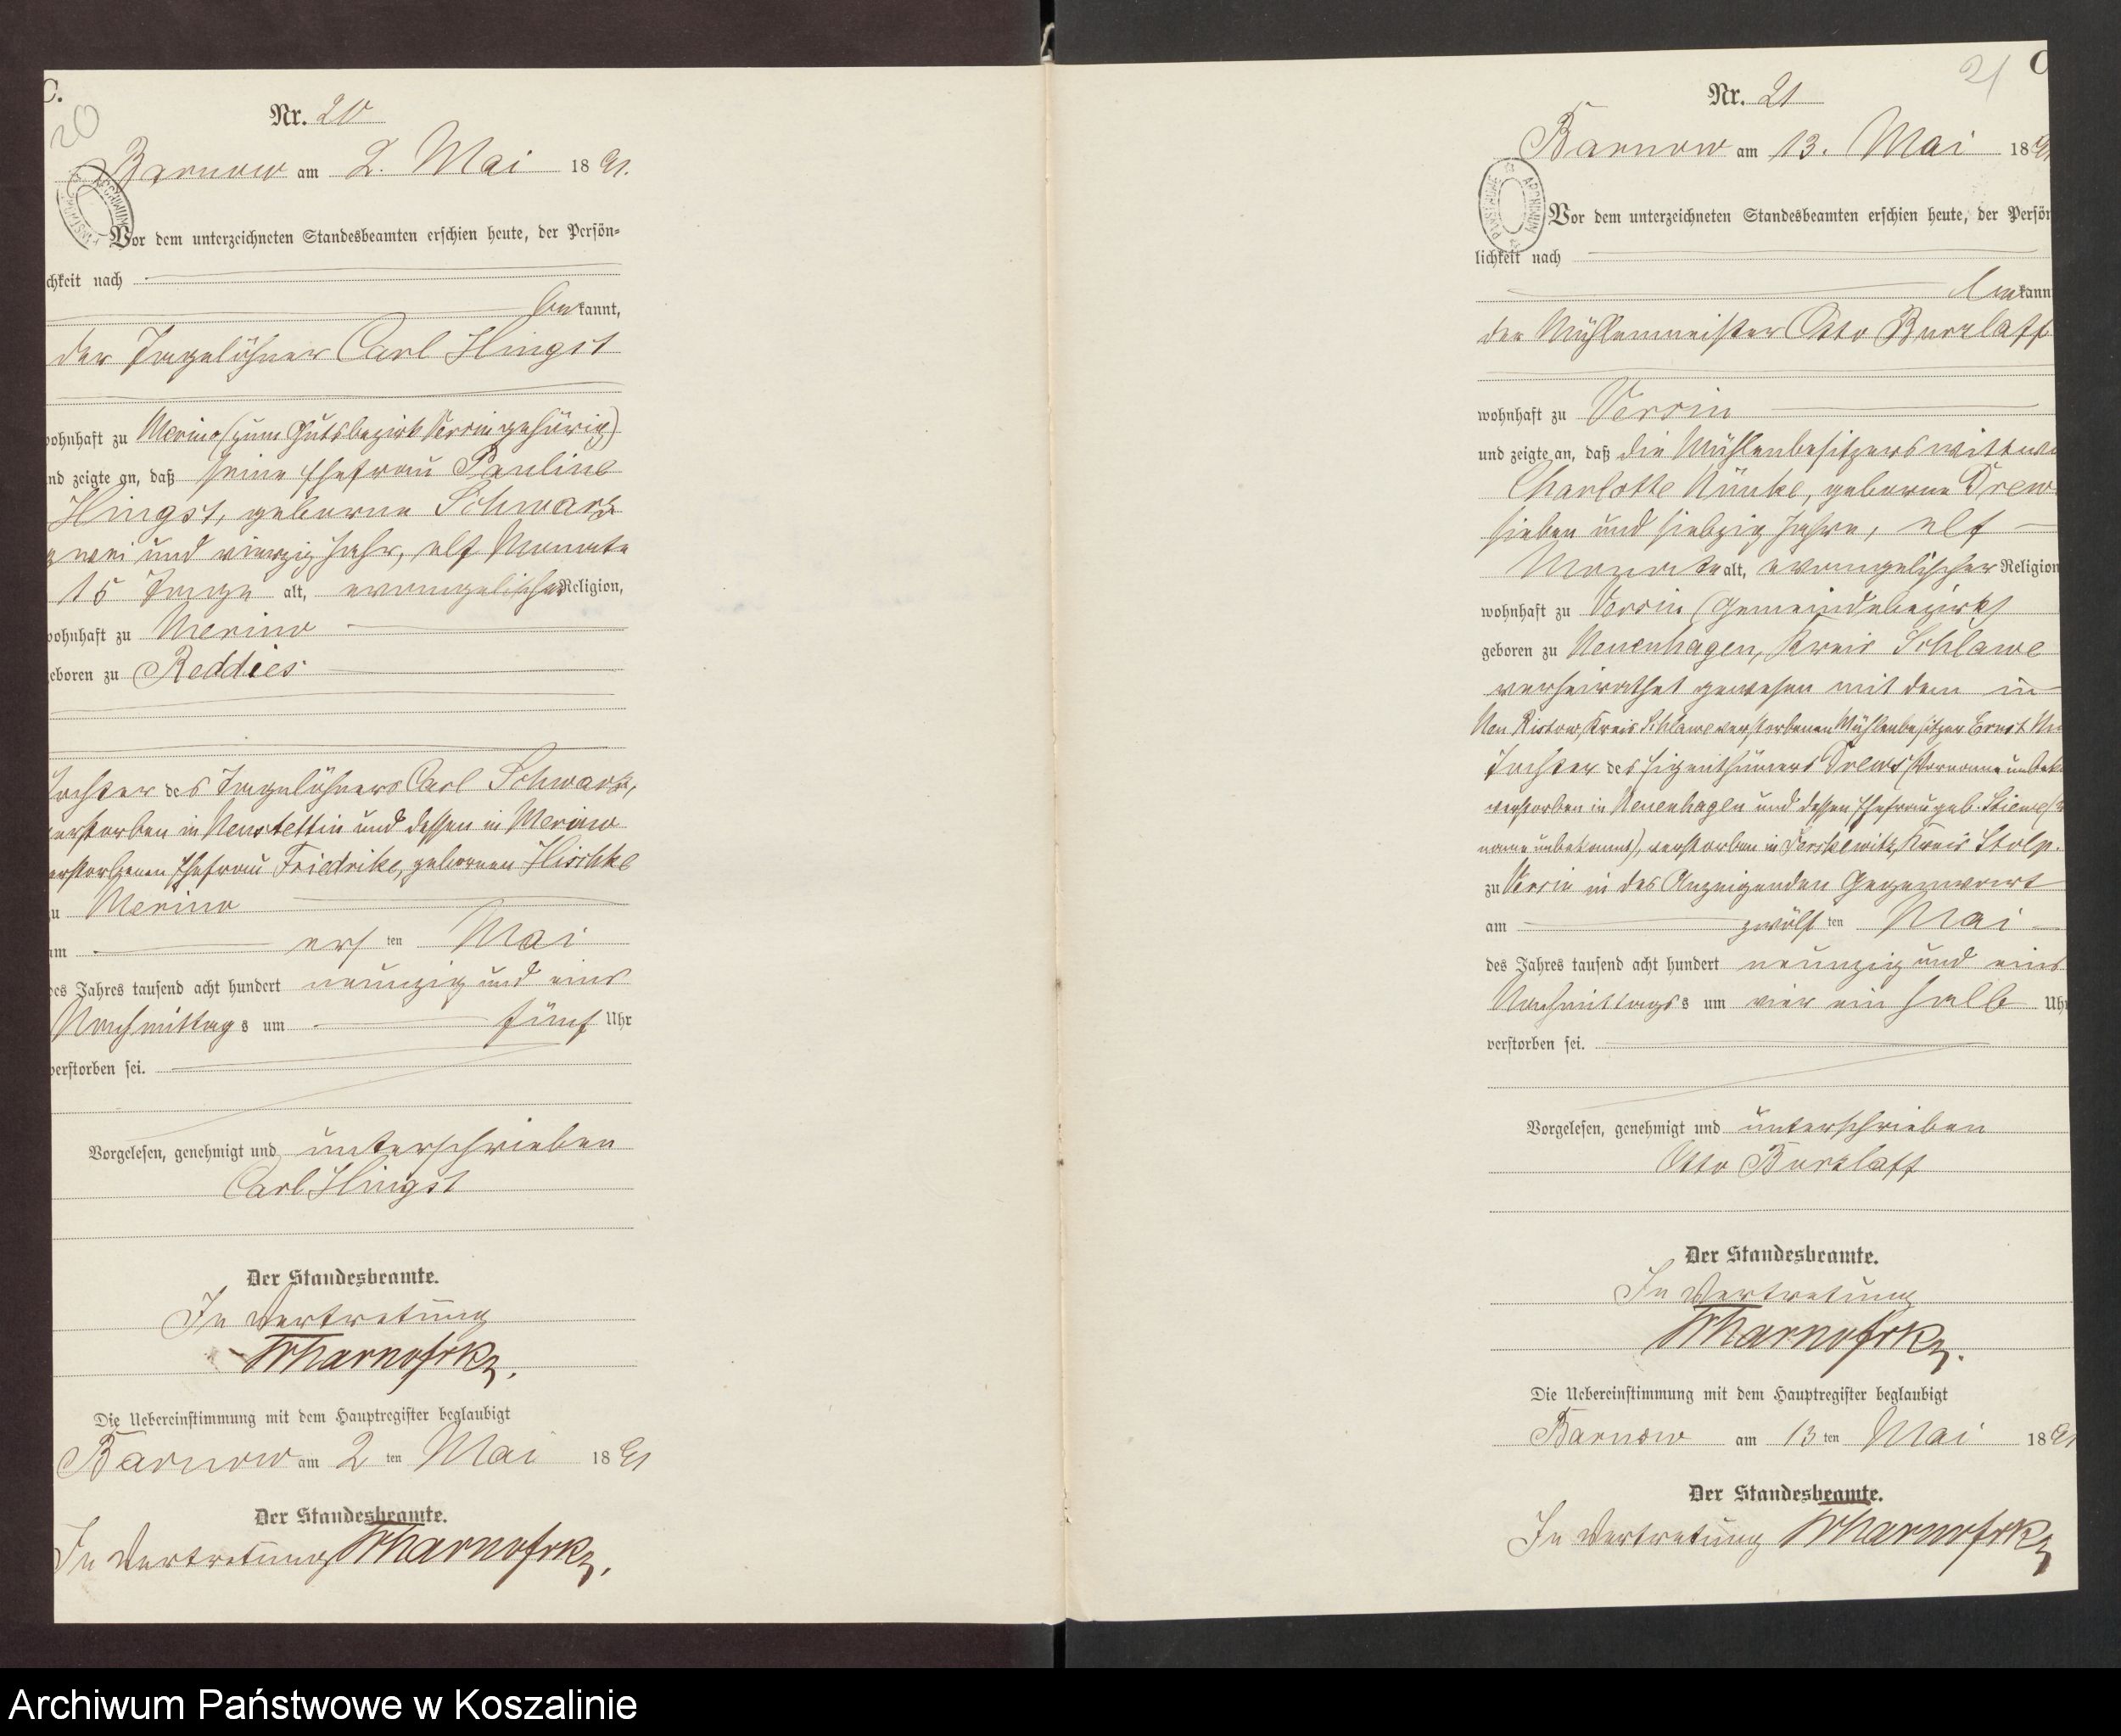 C.
20
Nr. 20
Barnow am 2. Mai 1891.
Vor dem unterzeichneten Standesbeamten erschien heute, der Persön=
chkeit nach
bekannt,
der Tagelöhner Carl Hingst
ohnhaft zu Merino (zum Gutsbezirk Versin gehörig)
nd zeigte an, daß seine Ehefrau Pauline
Hingst, geborne Schwarz
zwei und vierzig Jahr, elf Monate
15 Tage alt, evangelischer Religion,
wohnhaft zu Merino
eboren zu Reddies
Tochter des Tagelöhners Carl Schwarz,
verstorben in Neustettin und dessen in Merino
verstorbenen Ehefrau Friedrike, gebornen Hischke
zu Merino
am ersten Mai
des Jahres tausend acht hundert neunzig und eins
Nachmittags um fünf Uhr
verstorben sei.
Vorgelesen, genehmigt und unterschrieben
Carl Hingst
Der Standesbeamte.
In Vertretung
Die Uebereinstimmung mit dem Hauptregister beglaubigt
Barnow am 2ten Mai 1891
Der Standesbeamte.
In Vertretung
21
C
Nr. 21
Barnow am 13. Mai 1891
ARCHIWUM PAŃSTWOWE
Vor dem unterzeichneten Standesbeamten erschien heute, der Persön
lichkeit nach
bekann
der Mühlenmeister Otto Burzlaff
wohnhaft zu Versin
und zeigte an, daß die Mühlenbesitzerswittwe
Charlotte geborne Drew
sieben und siebzig Jahre, elf
Monate alt, evangelischer Religion
wohnhaft zu Versin (Gemeindebezirk)
geboren zu Neuenhagen, Kreis Schlawe
verheirathet gewesen mit dem in
Neu Ristow, Kreis Schlawe verstorbenen Mühlenbesitzer Ernst
Tochter des Eigenthümers Drews (Vorname unbek
verstorben in Neuenhagen und dessen Ehefrau geb.
name unbekannt), verstorben in Kreis Stolp.
zu Versin in des Anzeigenden Gegenwart
am zwölften Mai
des Jahres tausend acht hundert neunzig und eins
Nachmittags um vier ein halb Uhr
verstorben sei.
Vorgelesen, genehmigt und unterschrieben
Otto Burzlaff
Der Standesbeamte.
In Vertretung
Die Uebereinstimmung mit dem Hauptregister beglaubigt
Barnow am 13ten Mai 1891
Der Standesbeamte.
In Vertretung
Archiwum Państwowe w Koszalinie